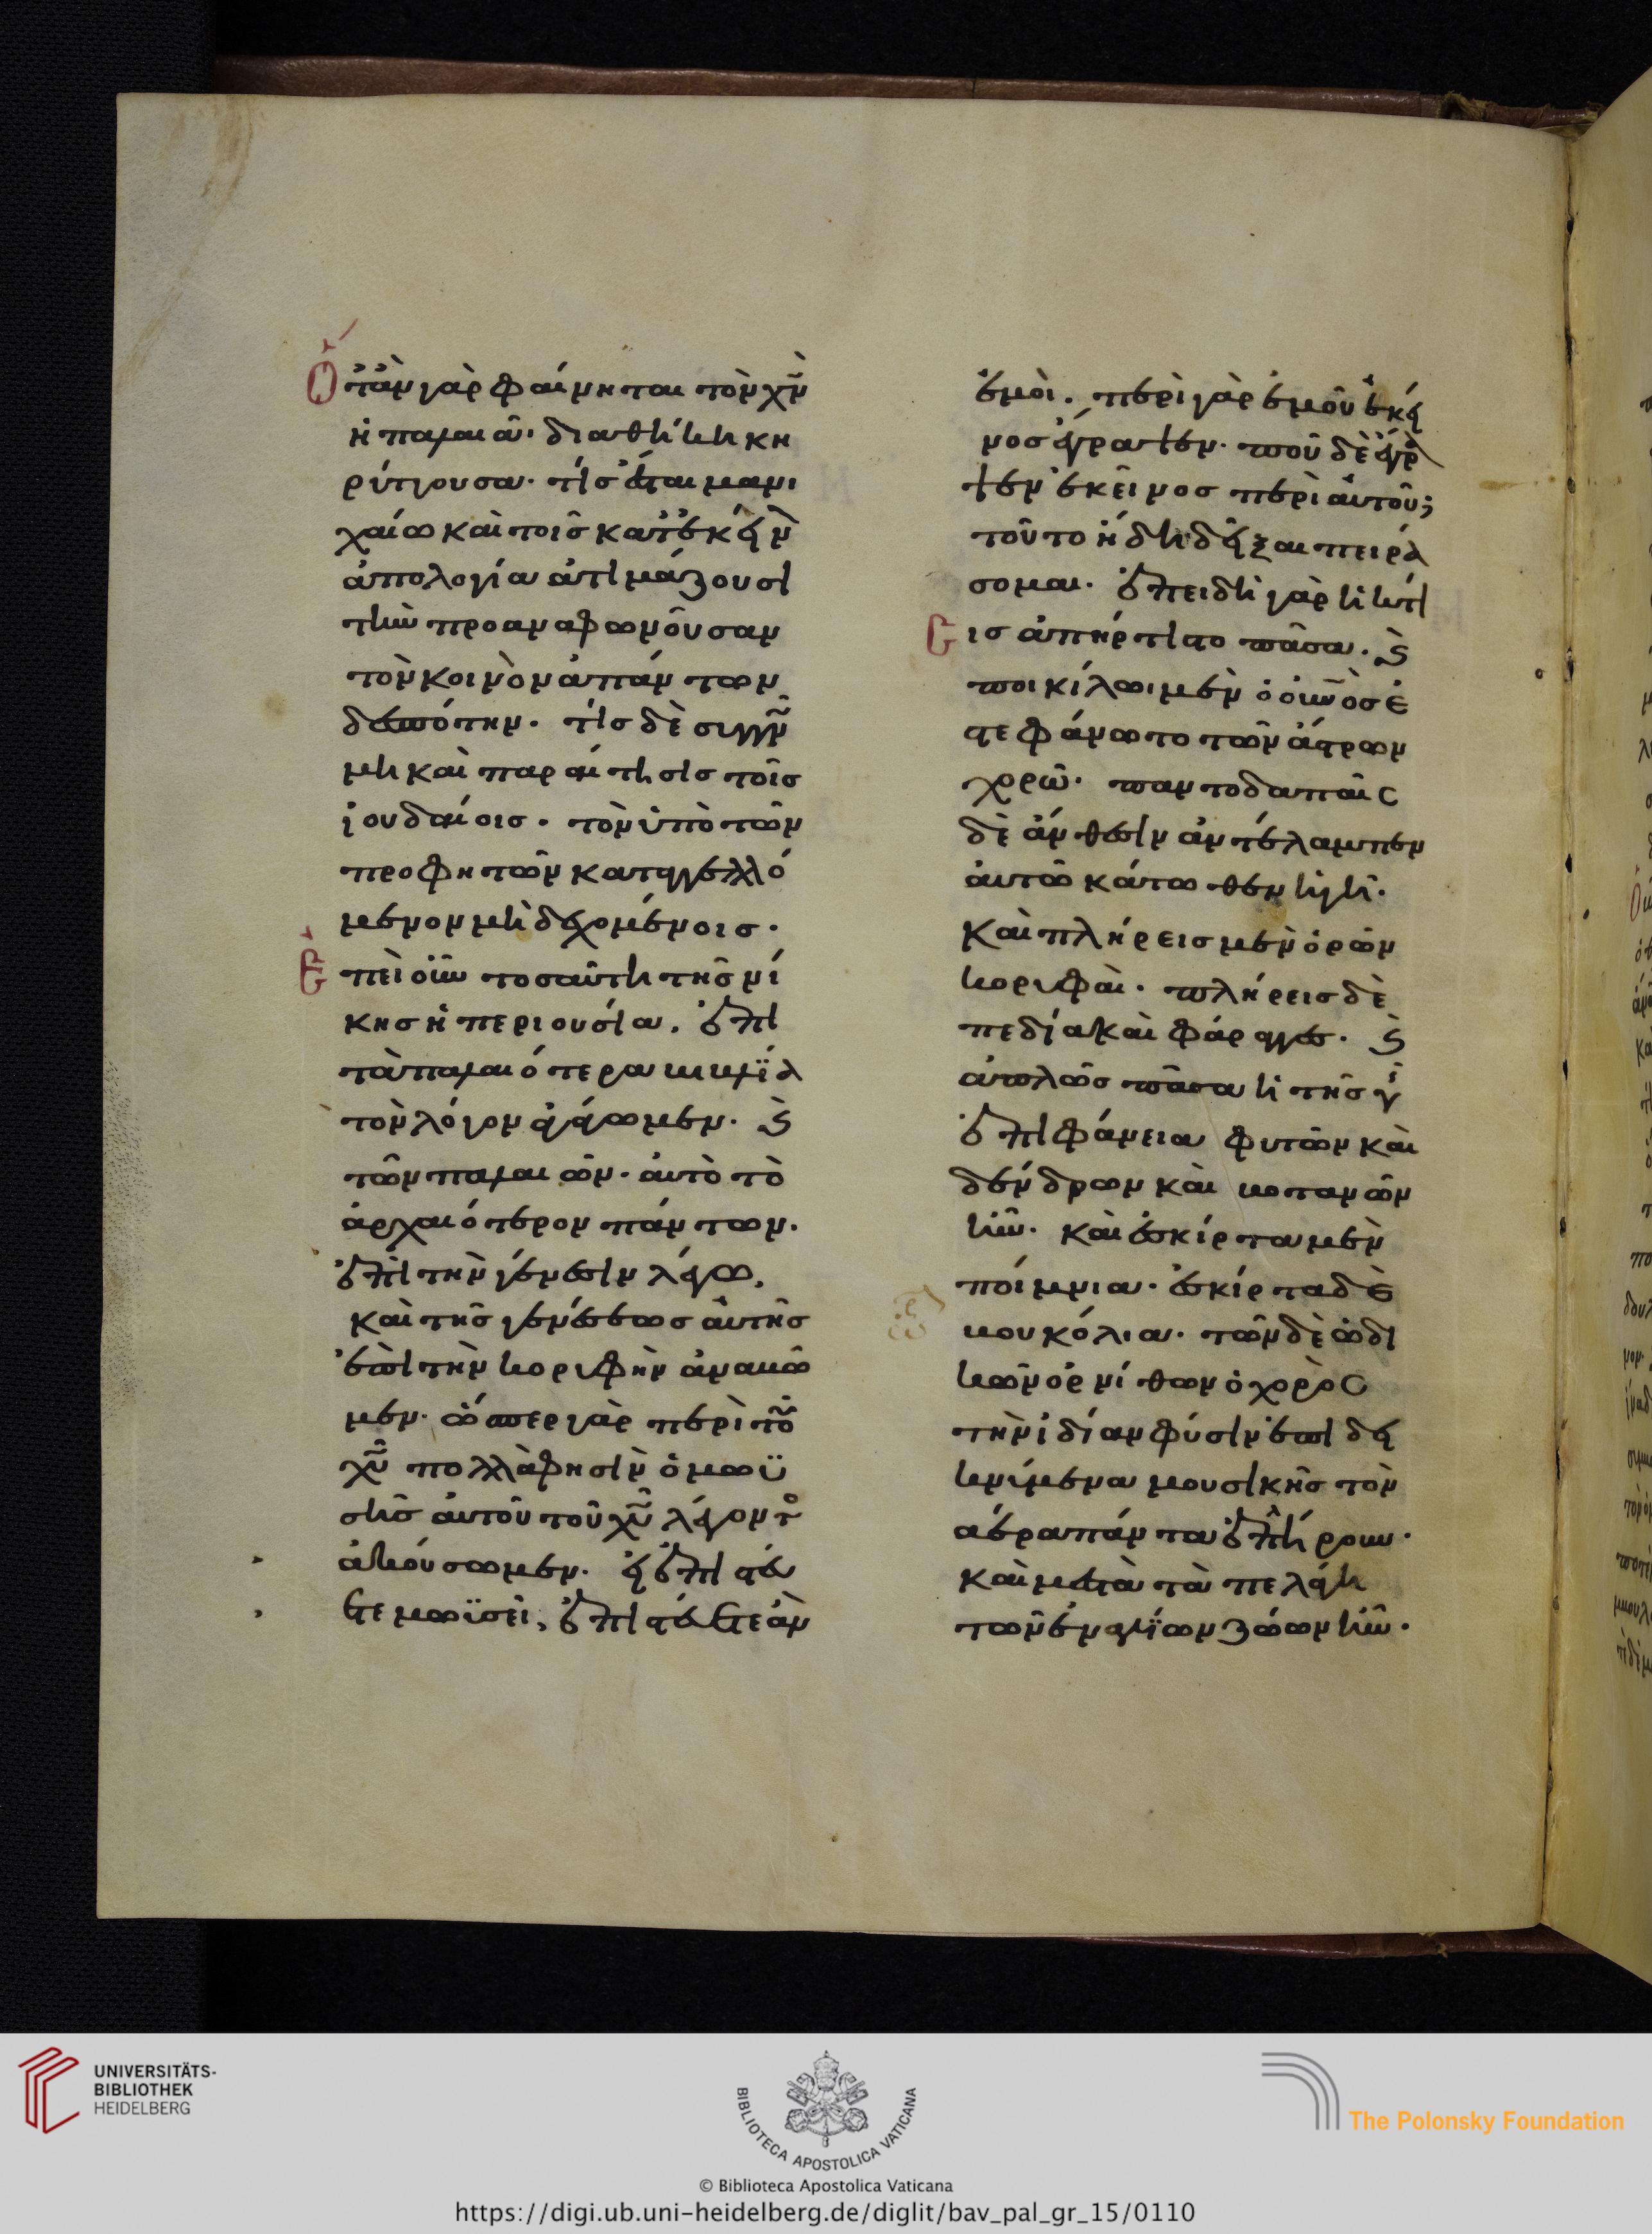 Ὅταν γὰρ φαίνηται τὸν χν̅
ἡ παλαιὰ διαθήκη κη
ρύττουσα· τίς ἔσται μανι
χαίω καὶ τοῖς κατ' ἐκείν
ἀπολογία ἀτιμάζουσι
τὴν προαναφωνοῦσαν
τὸν κοινὸν ἁπάντων
δεσπότην· τίς δὲ συγγν
μη καὶ παραίτησις τοῖς
ἰουδαίοις· τὸν ὑπὸ τῶν
προφητῶν καταγγελλό
μενον μὴ δεχομένοις·
Ἐπεὶ οὖν τοσαύτη τῆς νί
κης ἡ περιουσία, ἐπὶ
τὰ παλαιότερα βιβλία
τὸν λόγον ἀγάγωμεν· καὶ
τῶν παλαιῶν· αὐτὸ τὸ
ἀρχαιότερον πάντων·
ἐπὶ τὴν γένεσιν λέγω,
καὶ τῆς γενέσεως αὐτῆς
ἐπὶ τὴν κορυφὴν ἀναβῶ
μεν· ὥσπερ γὰρ περὶ τοῦ
χυ̅ πολλὰ φησὶν ὁ μωϋ
σῆς αὐτοῦ τοῦ χυ̅ λέγοντο
ἀκούσωμεν· εἰ ἐπιστεύ
ετε μωϊσεῖ, ἐπιστεύετε ἂν
ἐμοὶ· περὶ γὰρ ἐμοῦ ἐκεῖ
νος ἔγραψεν· ποῦ δὲ ἔγρα
ψεν ἐκεῖνος περὶ αὐτοῦ;
τοῦτο ἤδη δεῖξαι πειρά
σομαι· Ἐπειδὴ γὰρ ἡ κτί
σις ἀπήρτιστο πᾶσα· καὶ
ποικίλω μὲν ὁ οὐνὸς ἐ
στεφάνωτο τῶν ἄστρων
χορῶ· παντοδαποῖς
δὲ ἄνθεσιν ἀντέλαμπεν
αὐτῶ κάτωθεν ἡ γῆ·
Καὶ πλήρεις μὲν ὁρῶν
κορυφαὶ· πλήρεις δὲ
πεδία καὶ φάραγγες· καὶ
ἁπλῶς πᾶσα ἡ τῆς γῆ
ἐπιφάνεια φυτῶν καὶ
δένδρων καὶ βοτανῶν
ἦν· καὶ ἐσκίρτα μὲν
ποίμνια· ἐσκίρτα δὲ
βουκόλια· τῶν δὲ ὠδι
κῶν ὀρνίθων ὁ χορὸς
τὴν ἰδίαν φύσιν ἐπιδει
κνύμενα μουσικῆς τὸν
ἀέρα πάντα ἐπλήρουν·
καὶ μετὰ τὰ πελάγη
τῶν ἐναλίων ζώων ἦν·
UNIVERSITÄTS-
BIBLIOTHEK
HEIDELBERG
BIBLIOTECA APOSTOLICA VATICANA
The Polonsky Foundation
© Biblioteca Apostolica Vaticana
https://digi.ub.uni-heidelberg.de/diglit/bav_pal_gr_15/0110